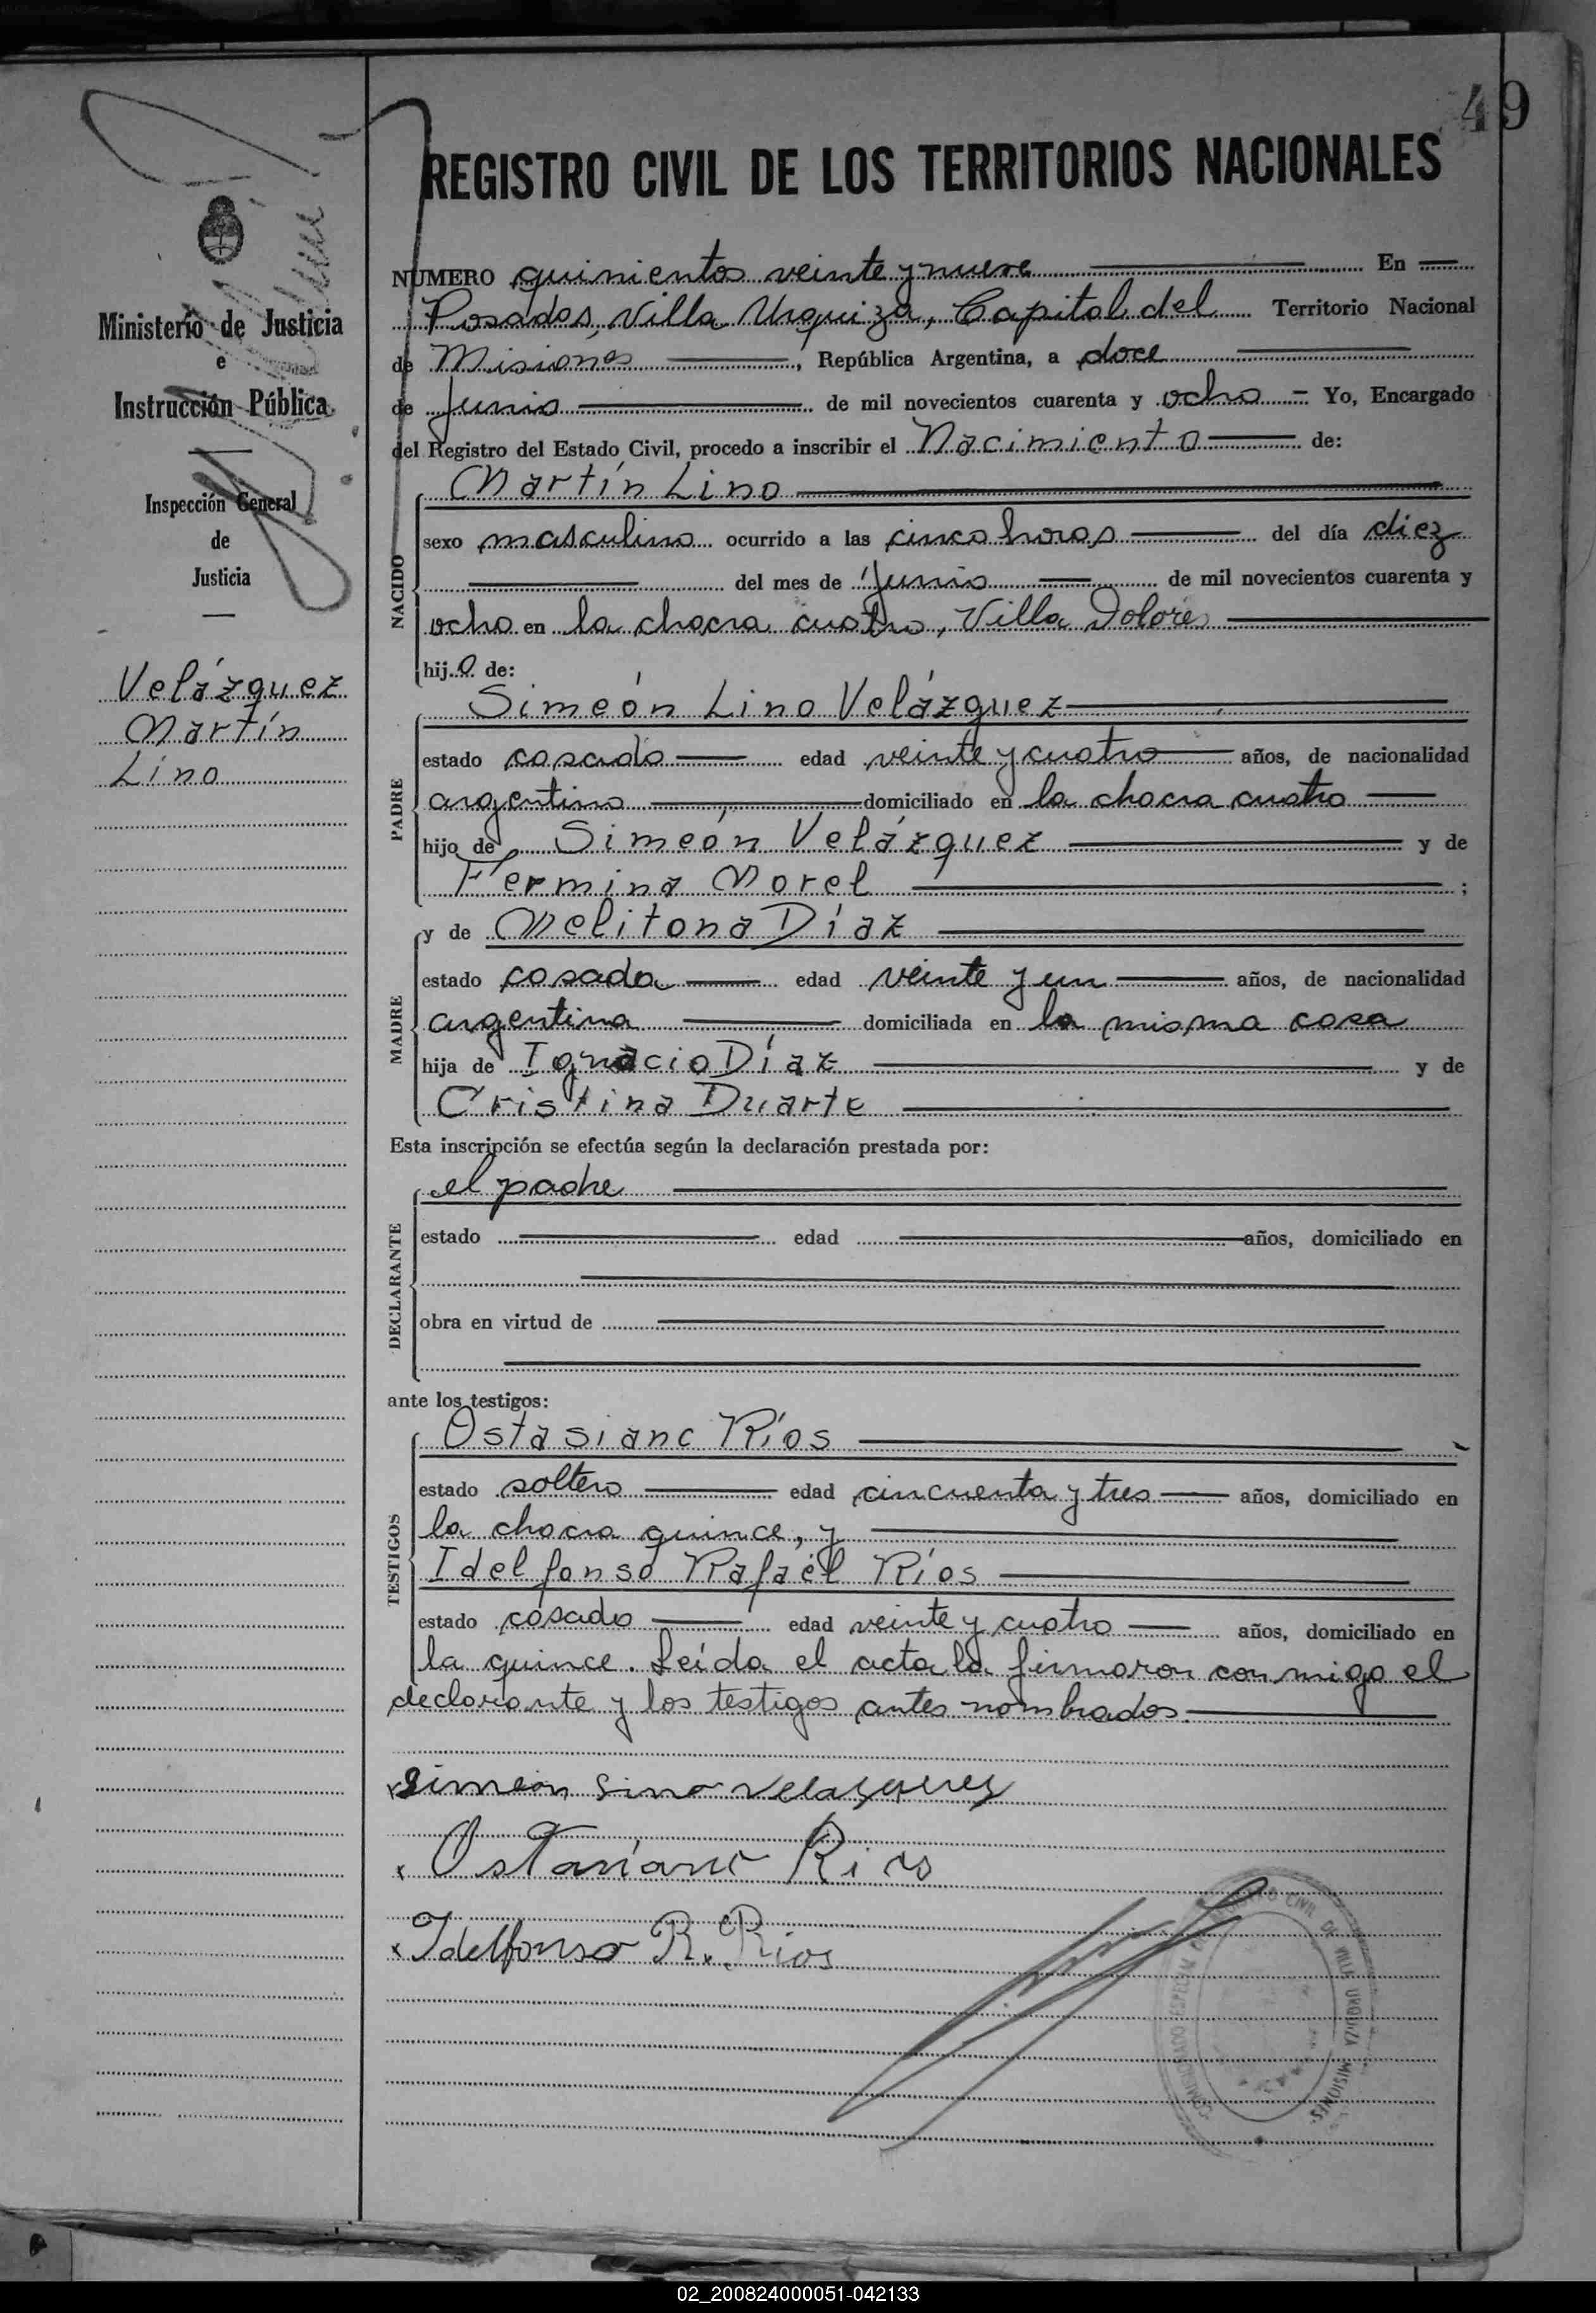 49
REGISTRO CIVIL DE LOS TERRITORIOS NACIONALES
Ministerio de Justicia
e
Instrucción Pública
Inspección General
de
Justicia
Velázquez
Martín
Lino
NUMERO quinientos veinte y nueve En
Posadas, Villa Urquiza, Capital del Territorio Nacional
de Misiones, República Argentina, a doce
de Junio de mil novecientos cuarenta y ocho - Yo, Encargado
del Registro del Estado Civil, procedo a inscribir el Nacimiento de:
NACIDO
Martín Lino
sexo masculino ocurrido a las cinco horas del día diez
del mes de Junio de mil novecientos cuarenta y
ocho en la chacra cuatro, Villa Dolores
hijo de:
PADRE
Simeón Lino Velázquez
estado casado edad veinte y cuatro años, de nacionalidad
argentino domiciliado en la chacra cuatro
hijo de Simeón Velázquez y de
Fermina Morel ;
MADRE
y de Melitona Díaz
estado casada edad veinte y un años, de nacionalidad
argentina domiciliada en la misma casa
hija de Ignacio Díaz y de
Cristina Duarte
Esta inscripción se efectúa según la declaración prestada por:
DECLARANTE
el padre
estado edad años, domiciliado en
obra en virtud de
ante los testigos:
TESTIGOS
Ostasiano Ríos
estado soltero edad cincuenta y tres años, domiciliado en
la chacra quince, y
Idelfonso Rafaél Ríos
estado casado edad veinte y cuatro años, domiciliado en
la quince. Leída el acta la firmaron conmigo el
declarante y los testigos antes nombrados.
x Simeon Lino Velasques
x Ostaciano Rios
x Idelfonso R. Rios
REGISTRO CIVIL DE VILLA URQUIZA MISIONES
02_200824000051-042133